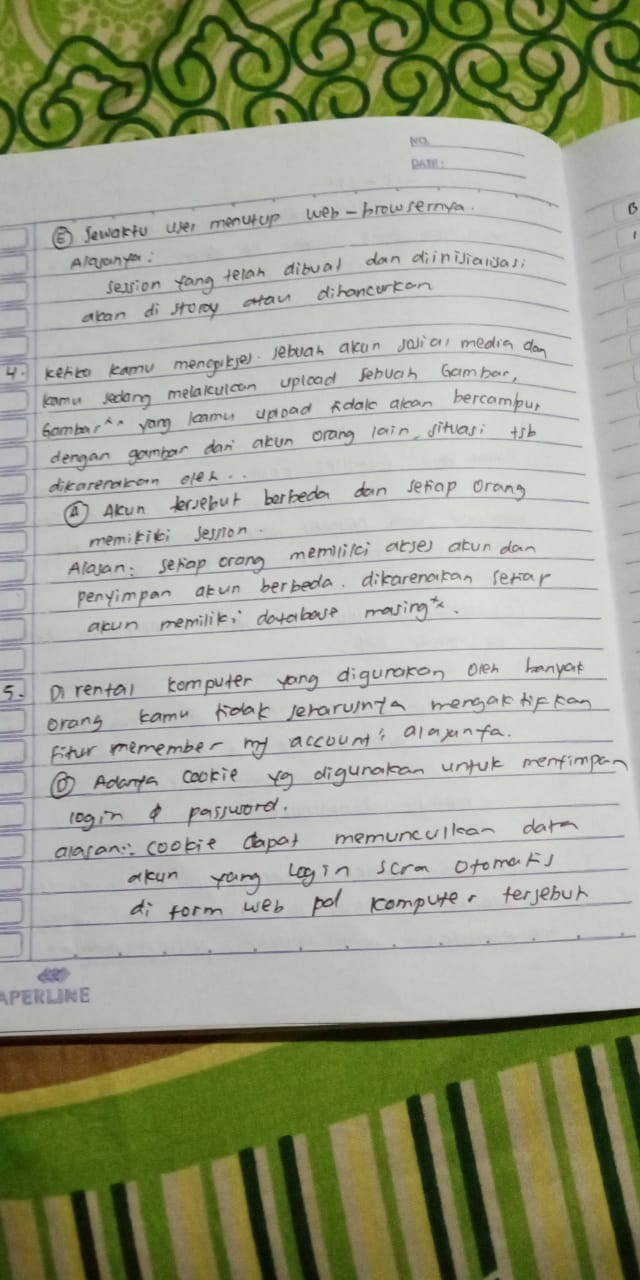 NO.
DATE:
(E) Sewaktu user menutup web-browsernya.
Alasanya:
session yang telah dibuat dan diinisialisasi
akan di story atau dihancurkan
4. ketika kamu mengakses. sebuah akun sosial media dan
kamu sedang melakukan upload sebuah Gambar,
Gambar" yang kamu upload tidak akan bercampur
dengan gambar dari akun orang lain, situasi tsb
dikarenakan oleh...
(A) Akun tersebut berbeda dan setiap orang
memikiki session.
Alasan: setiap orang memiliki akses akun dan
penyimpan akun berbeda. dikarenakan setiap
akun memiliki database masing".
5. Di rental komputer yang digunakan oleh banyak
orang kamu tidak seharusnya mengaktifkan
fitur remember my account; alasannya.
(D) Adanya cookie yg digunakan untuk menyimpan
login & password.
alasan: cookie dapat memunculkan data
akun yang login scra otomatis
di form web pd komputer tersebut
APERLINE
B
1